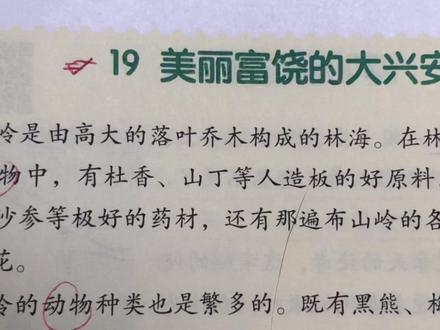 19 美丽富饶的大兴安
岭是由高大的落叶乔木构成的林海。在林
物中，有杜香、山丁等人造板的好原料
沙参等极好的药材，还有那遍布山岭的各
花。
岭的动物种类也是繁多的。既有黑熊、梅